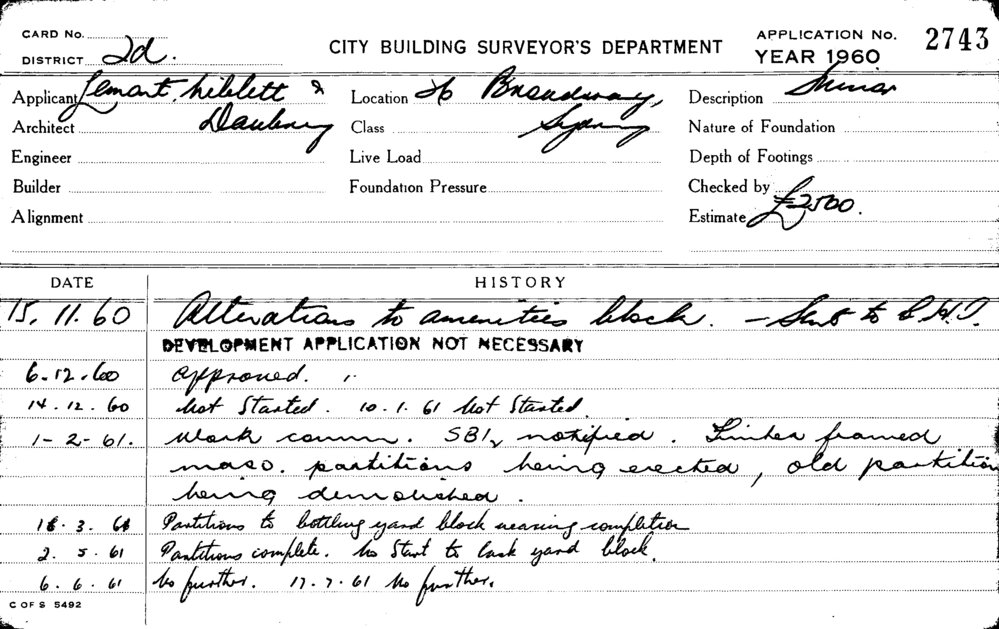 CARD No.
DISTRICT 2d.
CITY BUILDING SURVEYOR'S DEPARTMENT
APPLICATION No. 2743
YEAR 1960
Applicant &
Location 26 Broadway,
Description Minor
Architect
Class Sydney
Nature of Foundation
Engineer
Live Load
Depth of Footings
Builder
Foundation Pressure
Checked by
Alignment
Estimate £2500.
DATE HISTORY
15.11.60 Alterations to amenities block. - Sent to
DEVELOPMENT APPLICATION NOT NECESSARY
6.12.60 approved.
14.12.60 Not Started. 10.1.61 Not Started.
1-2-61. Work comm. notified. Timber framed
maso. partitions being erected, old partition
being demolished.
3. Partitions to bottling yard block nearing completion
2.5.61 Partitions complete. No Start to cask yard block.
6.6.61 No further. 17.7.61 No further.
C OF S 5492